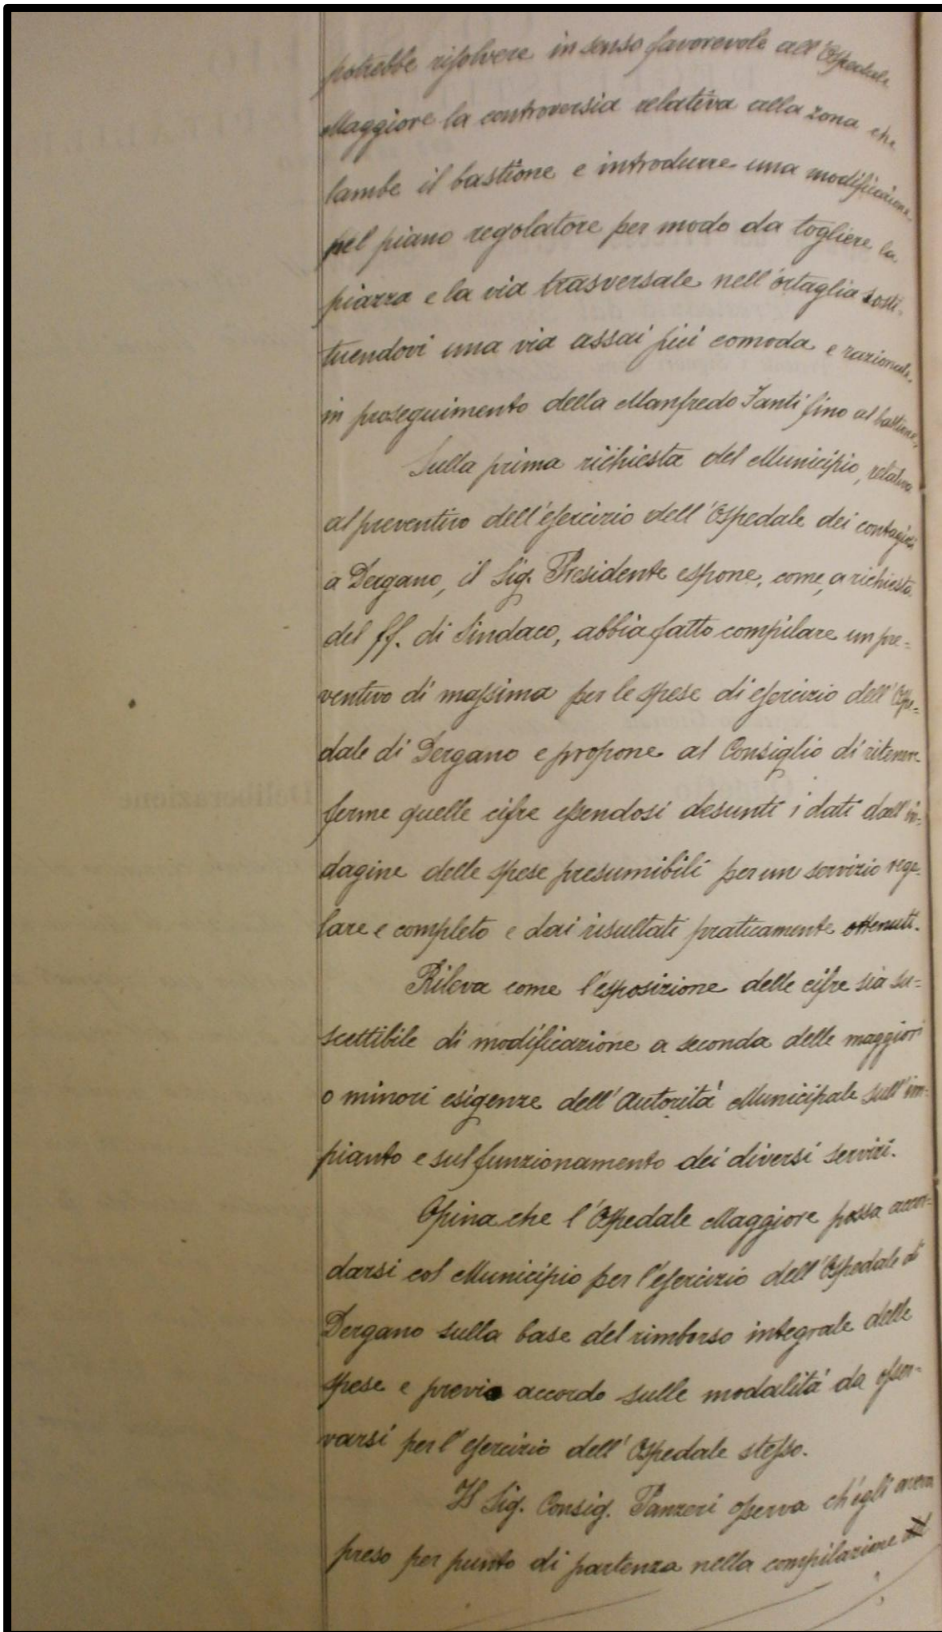 potrebbe risolvere in senso favorevole all'Ospedale
Maggiore la controversia relativa alla zona che
lambe il bastione e introdurre una modificazione
nel piano regolatore per modo da togliere la
piazza e la via trasversale nell'ortaglia sosti-
tuendovi una via assai più comoda e razionale,
in proseguimento della Manfredo Fanti fino al bastione,
Sulla prima richiesta del Municipio, relativa
al preventivo dell'esercizio dell'Ospedale dei contagiosi
a Dergano, il Sig. Presidente espone, come, a richiesta
del ff. di Sindaco, abbia fatto compilare un pre=
ventivo di massima per le spese di esercizio dell'Ospe=
dale di Dergano e propone al Consiglio di ritenere
ferme quelle cifre essendosi desunti i dati dall'in=
dagine delle spese presumibili per un servizio rego-
lare e completo e dai risultati praticamente ottenuti.
Rileva come l'esposizione delle cifre sia su=
scettibile di modificazione a seconda delle maggiori
o minori esigenze dell'Autorità Municipale sull'im=
pianto e sul funzionamento dei diversi servizi.
Opina che l'Ospedale Maggiore possa accor=
darsi col Municipio per l'esercizio dell'Ospedale di
Dergano sulla base del rimborso integrale delle
spese e previo accordo sulle modalità da osser=
varsi per l'esercizio dell'Ospedale stesso.
Il Sig. Consig. Panzeri osserva ch'egli aveva
preso per punto di partenza nella compilazione
Deliberazione